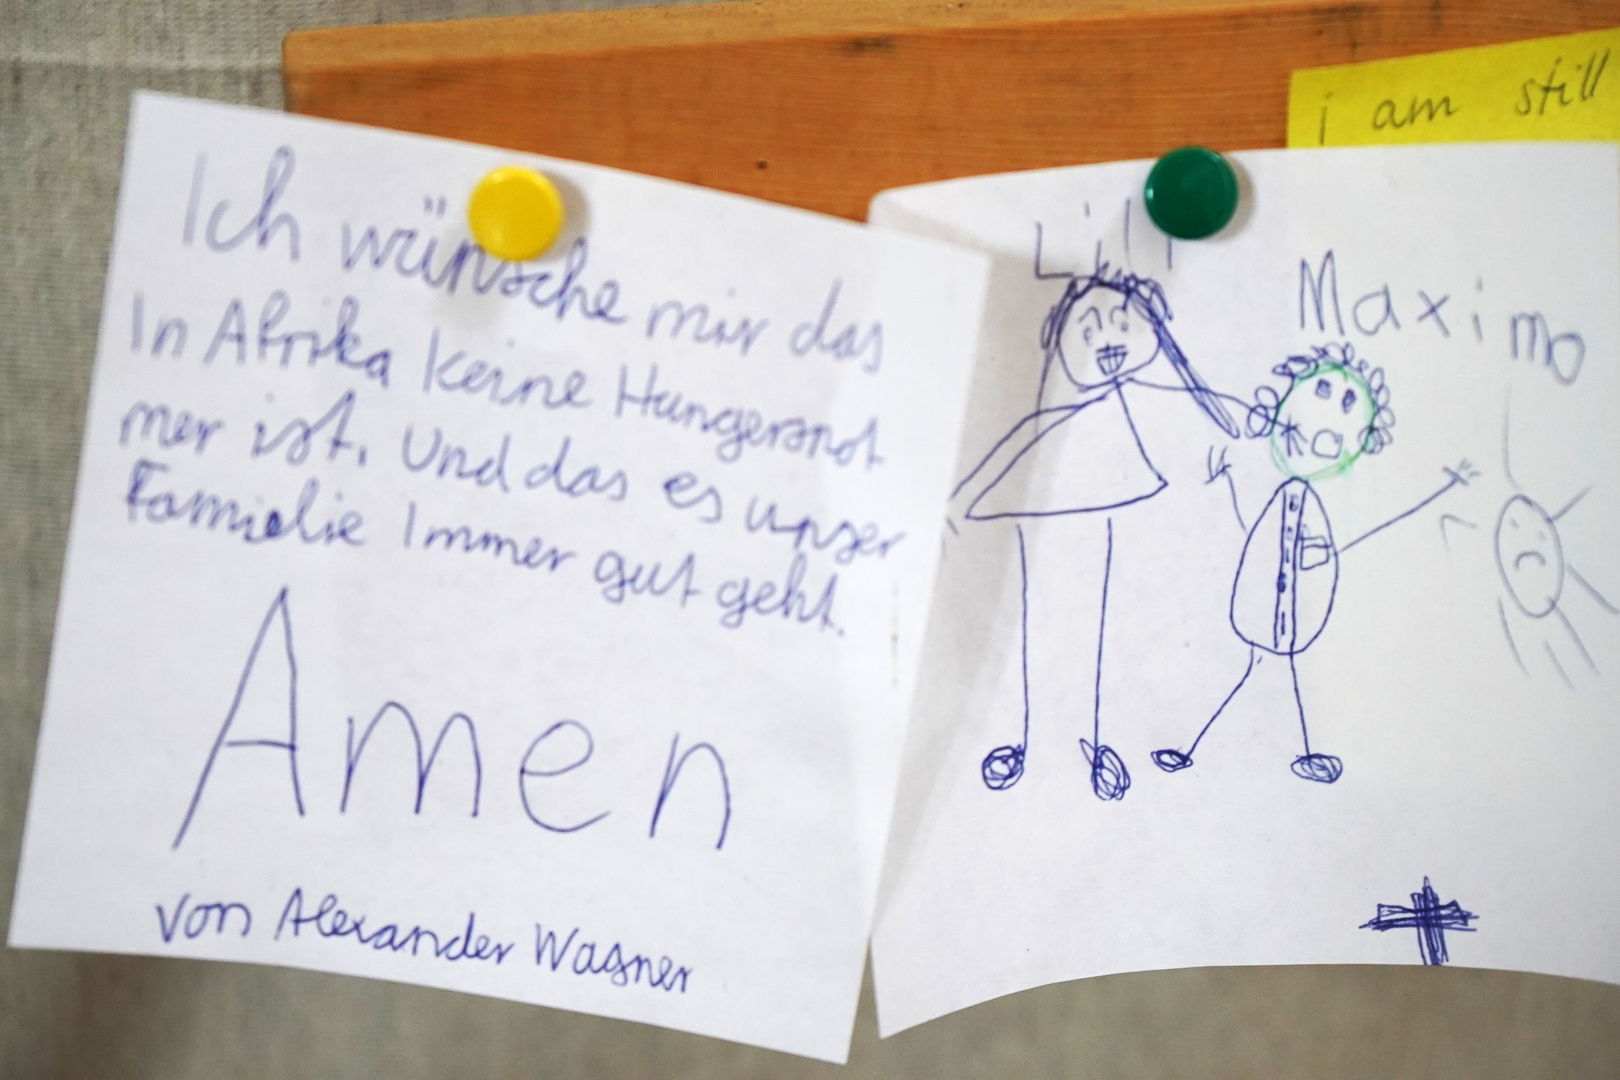 Ich wünsche mir das
In Afrika keine Hungersnot
mer ist. Und das es unser
Famielie Immer gut geht.
Amen
von Alexander Wagner
Lili
Maximo
i am still